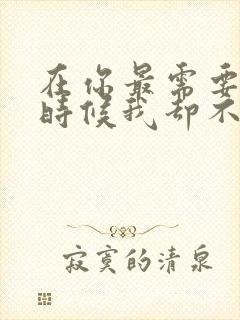 在你最需要
時候我却不
寂寞的清泉